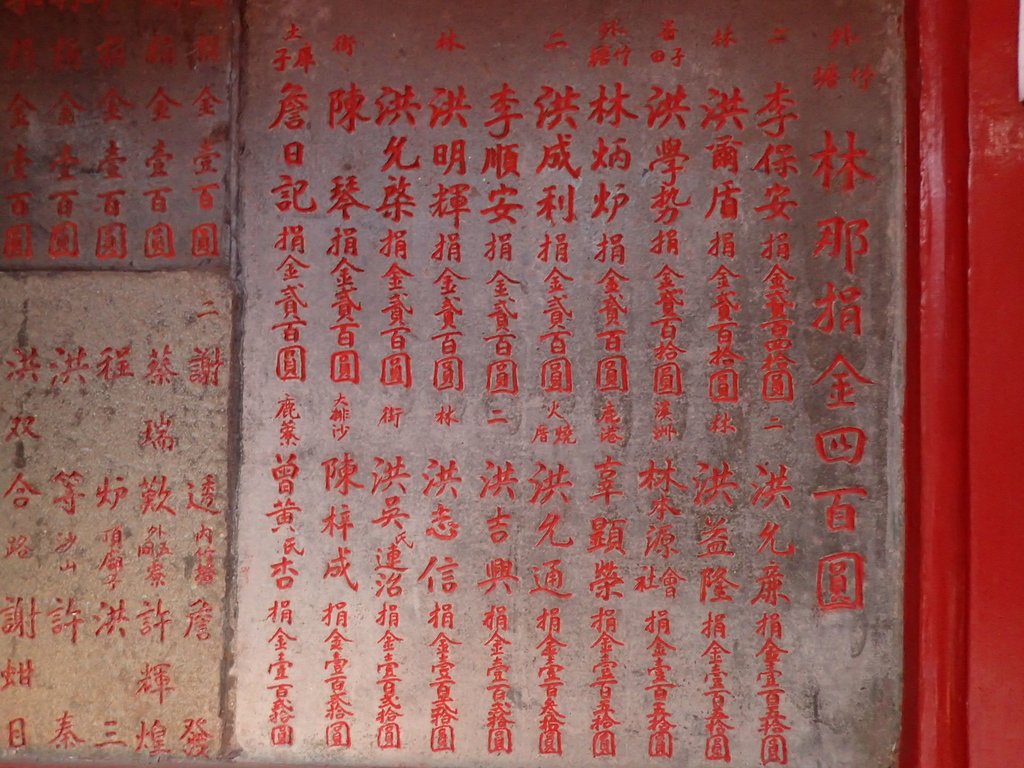 外竹塘
林那捐金四百圓
二
李保安捐金貳百四拾圓
二
洪允廉捐金壹百貳拾圓
林
洪爾盾捐金貳百拾圓
林
洪益隆捐金壹百貳拾圓
番子田
洪學勢捐金貳百拾圓
溪州
林本源會社捐金壹百貳拾圓
外竹塘
林炳炉捐金貳百圓
鹿港
辜顯榮捐金壹百貳拾圓
二
洪成利捐金貳百圓
火燒厝
洪允通捐金壹百貳拾圓
李順安捐金貳百圓
二
洪吉興捐金壹百貳拾圓
林
洪明輝捐金貳百圓
林
洪志信捐金壹百貳拾圓
洪允柒捐金貳百圓
街
洪吳氏連治捐金壹百貳拾圓
街
陳琴捐金貳百圓
大排沙
陳梓成捐金壹百貳拾圓
土庫子
詹日記捐金貳百圓
鹿藔
曾黃氏杏捐金壹百貳拾圓
捐金壹百圓
捐金壹百圓
捐金壹百圓
捐金壹百圓
捐金壹百圓
二
謝透
內竹塘
詹發
蔡瑞歎
許輝煌
程炉
頂廟子
洪三
洪等
沙山
許秦
洪双合
路
謝蚶目